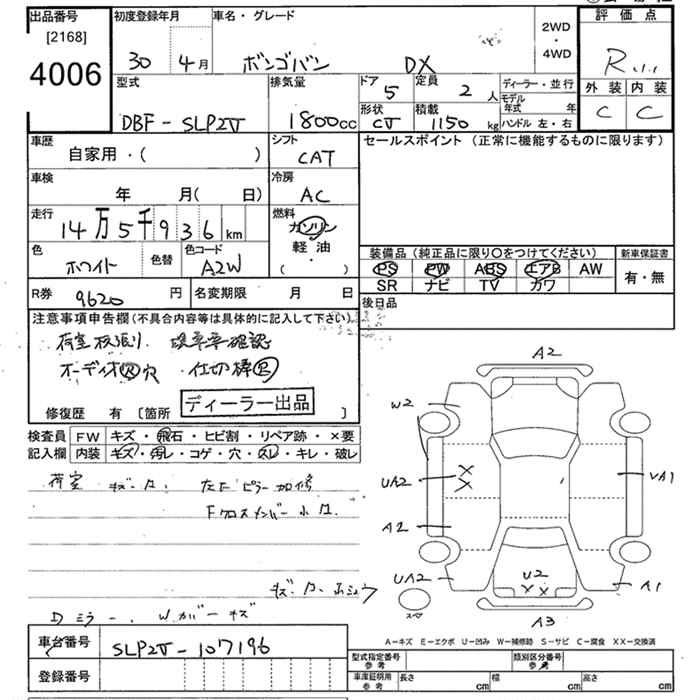 出品番号
[2168]
4006
初度登録年月
30 4月
車名・グレード
ボンゴバン DX
2WD
・
4WD
評価点
R
外装 内装
C C
型式
DBF-SLP2V
排気量
1800cc
ドア
5
定員
2人
形状
CV
積載
1150kg
ディーラー・並行
モデル年式 年
ハンドル 左・右
車歴
自家用・( )
シフト
CAT
セールスポイント (正常に機能するものに限ります)
車検
年 月( 日)
冷房
AC
走行
14万5千936km
燃料
ガソリン
軽油
( )
色
ホワイト
色替
色コード
A2W
装備品 (純正品に限り○をつけてください)
PS PW ABS エアB AW
SR ナビ TV カワ
新車保証書
有・無
R券
9620円
名変期限 月 日
後日品
注意事項申告欄(不具合内容等は具体的に記入して下さい)
荷室板張り 改善車確認
オーディオR穴 仕切棒R
ディーラー出品
修復歴 有 [箇所 ]
検査員記入欄
FW キズ・飛石・ヒビ割・リペア跡・×要
内装 キズ・汚レ・コゲ・穴・スレ・キレ・破レ
荷室 キズ・凹
キズ・凹
Dミラー、Wカバーキズ
車台番号
SLP2V-107196
登録番号
A2
W2
UA2
A2
UA2
UA1
A1
U2
A3
スペ
A-キズ E-エクボ U-凹み W-補修跡 S-サビ C-腐食 XX-交換済
型式指定番号 参考
類別区分番号 参考
車庫証明用 参考
長さ cm
幅 cm
高さ cm